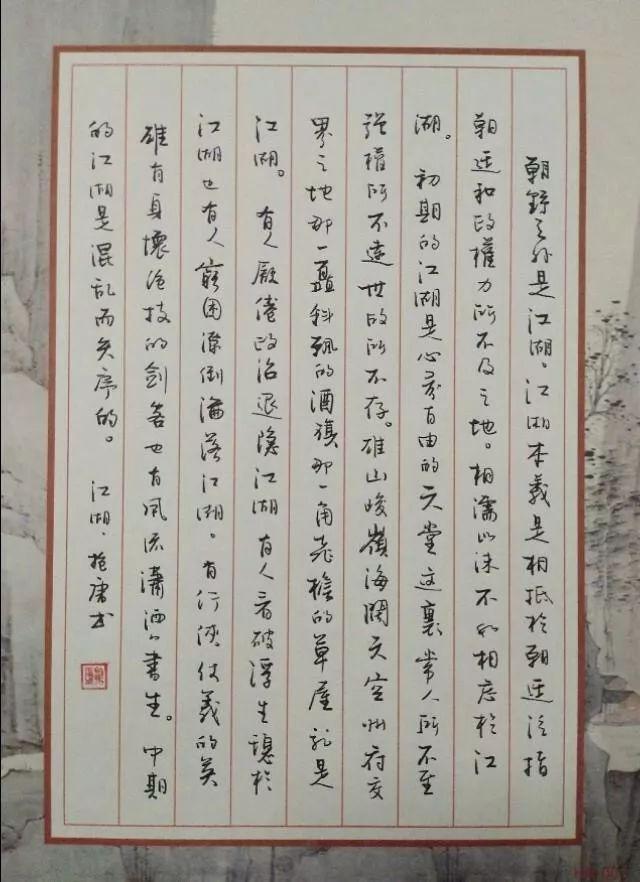 朝野之外是江湖。江湖本義是相抵於朝廷泛指
朝廷和政權力所不及之地。相濡以沫不如相忘於江
湖。初期的江湖是心灵自由的天堂这裏常人所不至
强權所不達世故所不存。雄山峻嶺海闊天空州府交
界之地那一盏斜飄的酒旗那一角飛檐的草屋就是
江湖。有人厭倦政治退隐江湖有人看破浮生隐於
江湖也有人窮困潦倒淪落江湖。有行俠仗義的英
雄有身懷绝技的劍客也有風流瀟洒的書生。中期
的江湖是混乱而失序的。江湖·
书